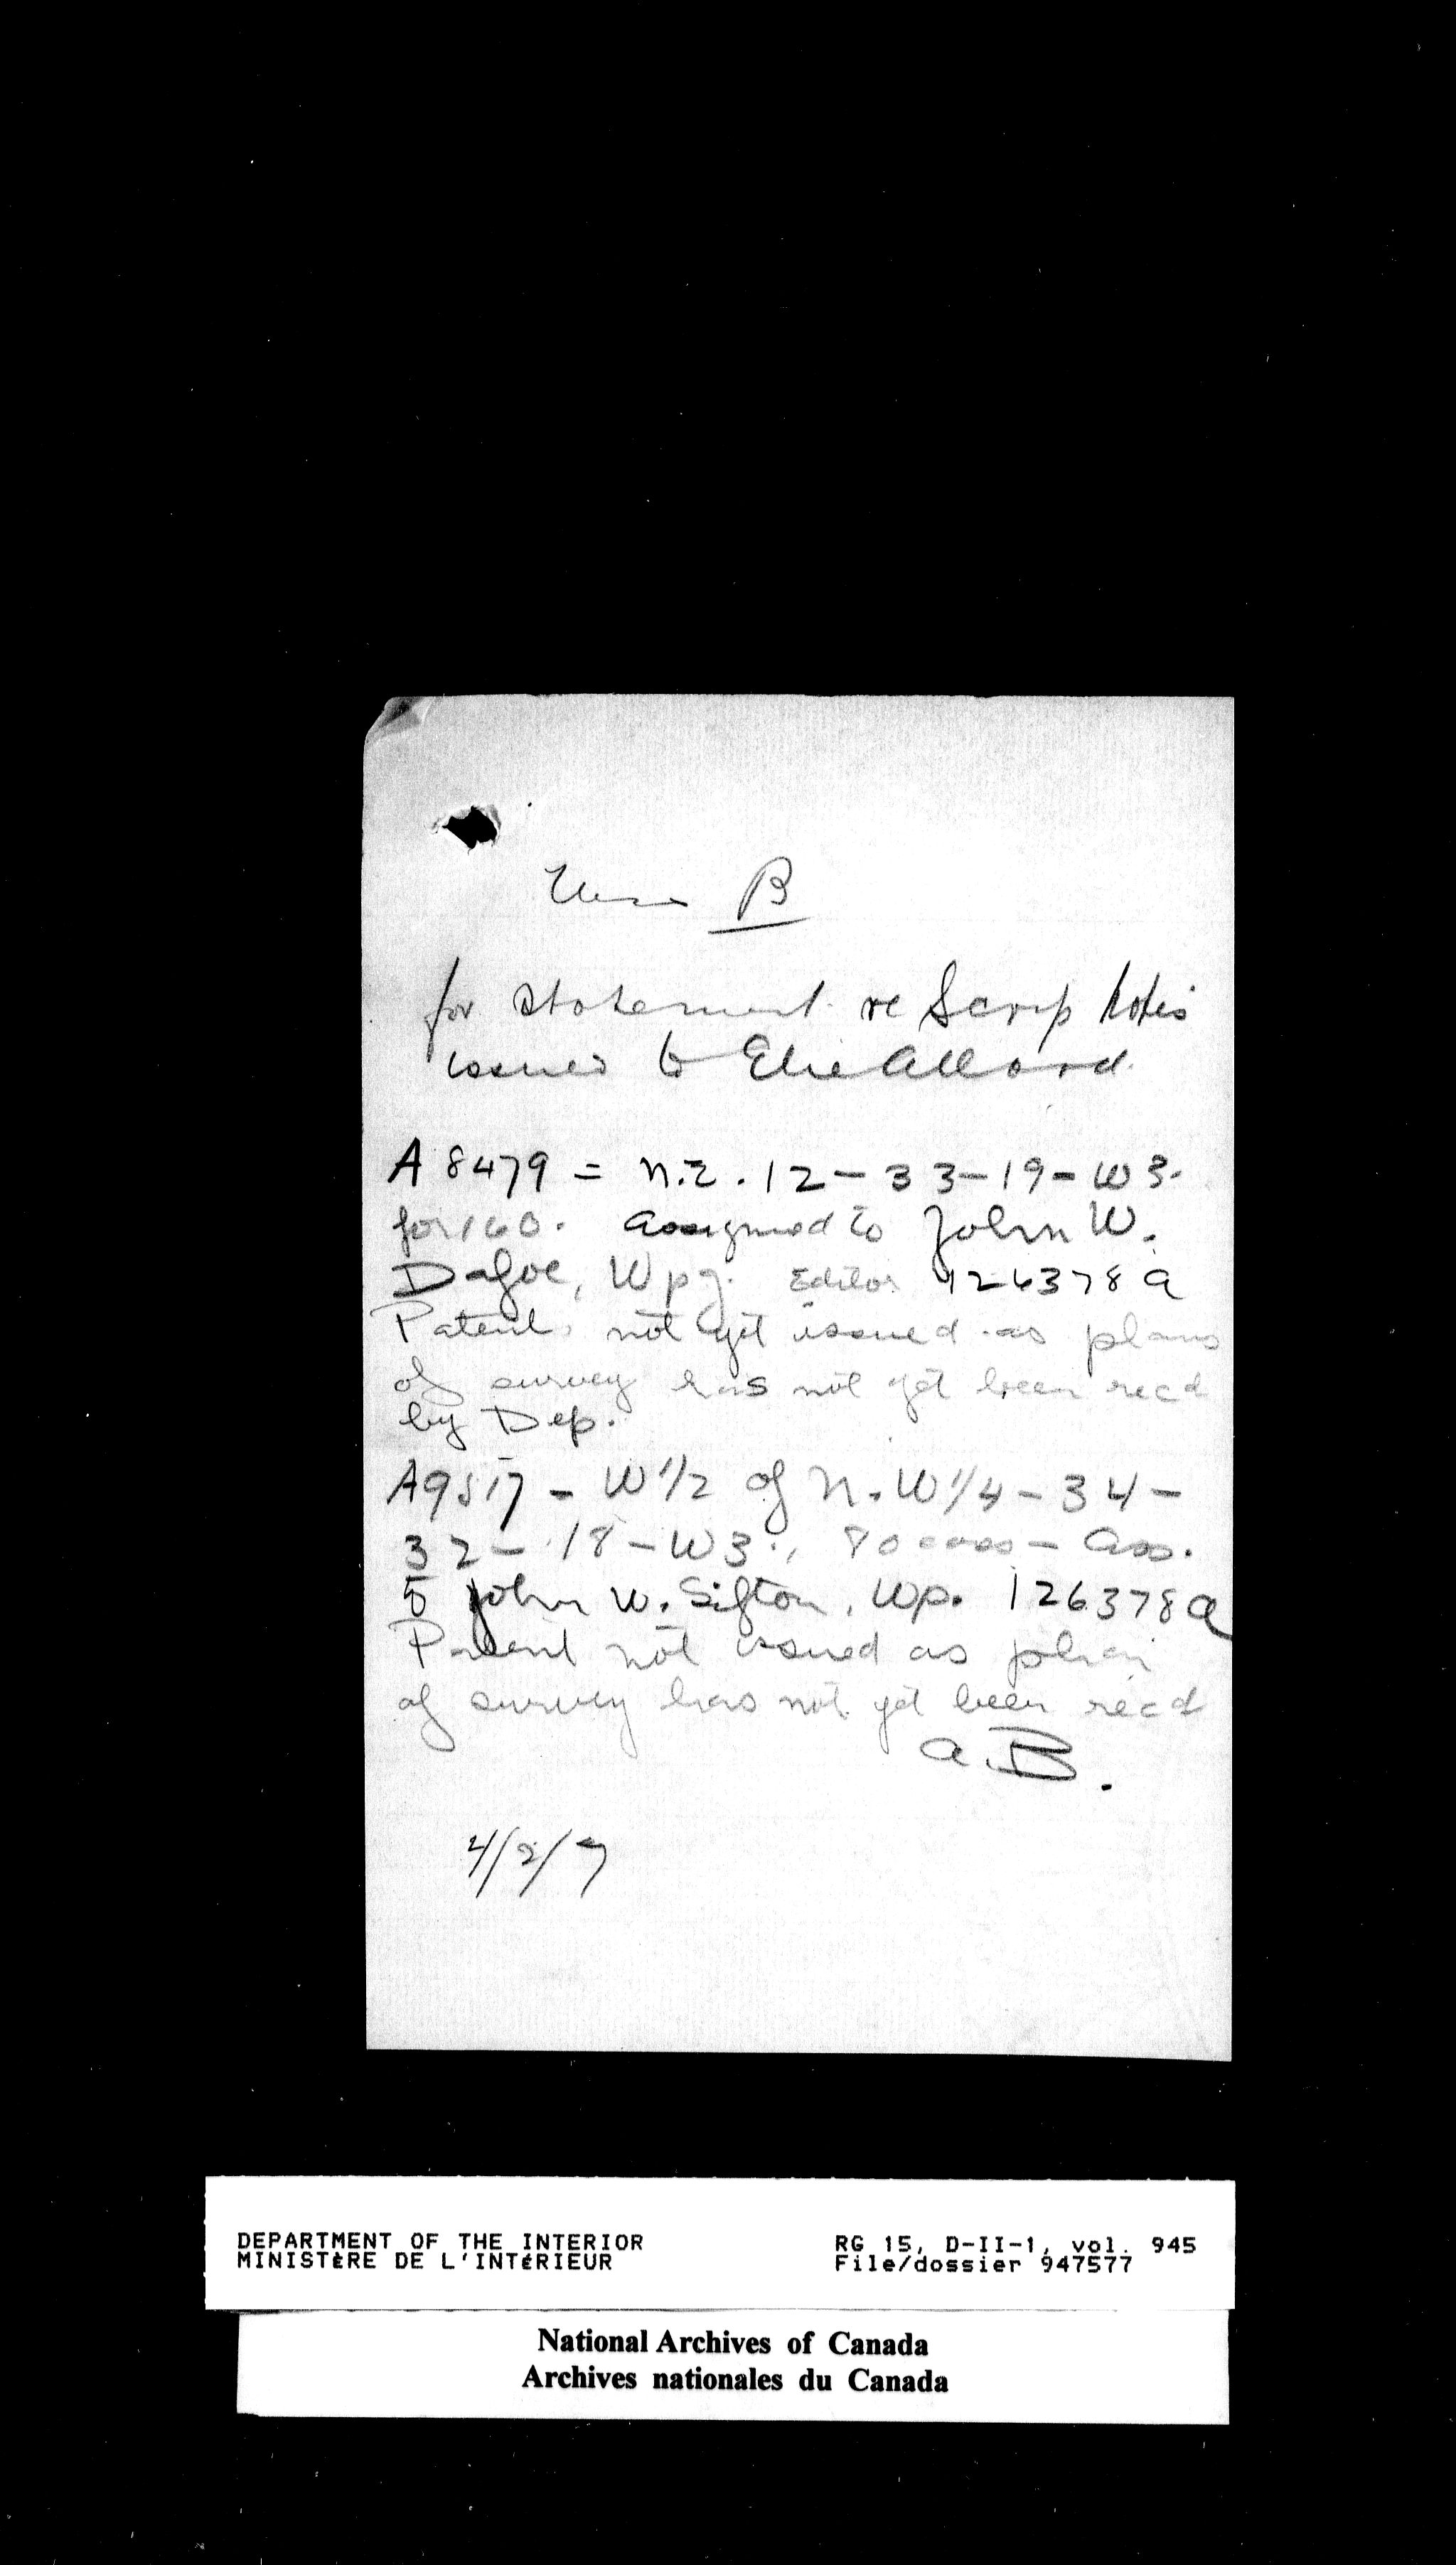 B
for statement re Scrip Notes
issued to Elie Allard.
A 8479 = N.E. 12 - 33 - 19 - W 3.
for 160. Assigned to John W.
Dafoe, Wpg. Editor 126378 a
Patent not yet issued as plans
of survey has not yet been rec'd
by Dep.
A9517 - W 1/2 of N.W 1/4 - 34 -
32 - 18 - W 3., 80 acres - Ass.
to John W. Sifton, Wp. 126378 a
Patent not issued as plan
of survey has not yet been rec'd
a.B.
4/2/7
DEPARTMENT OF THE INTERIOR RG 15, D-II-1, vol. 945
MINISTÈRE DE L'INTÉRIEUR File/dossier 947577
National Archives of Canada
Archives nationales du Canada